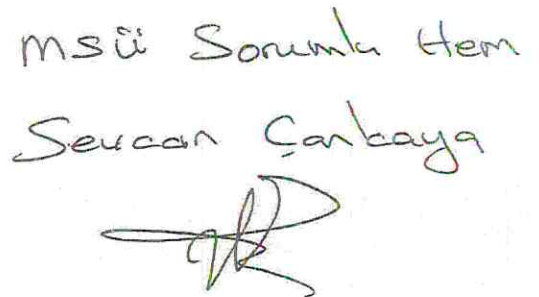 MSÜ Sorumlu Hem
Sevcan Çankaya